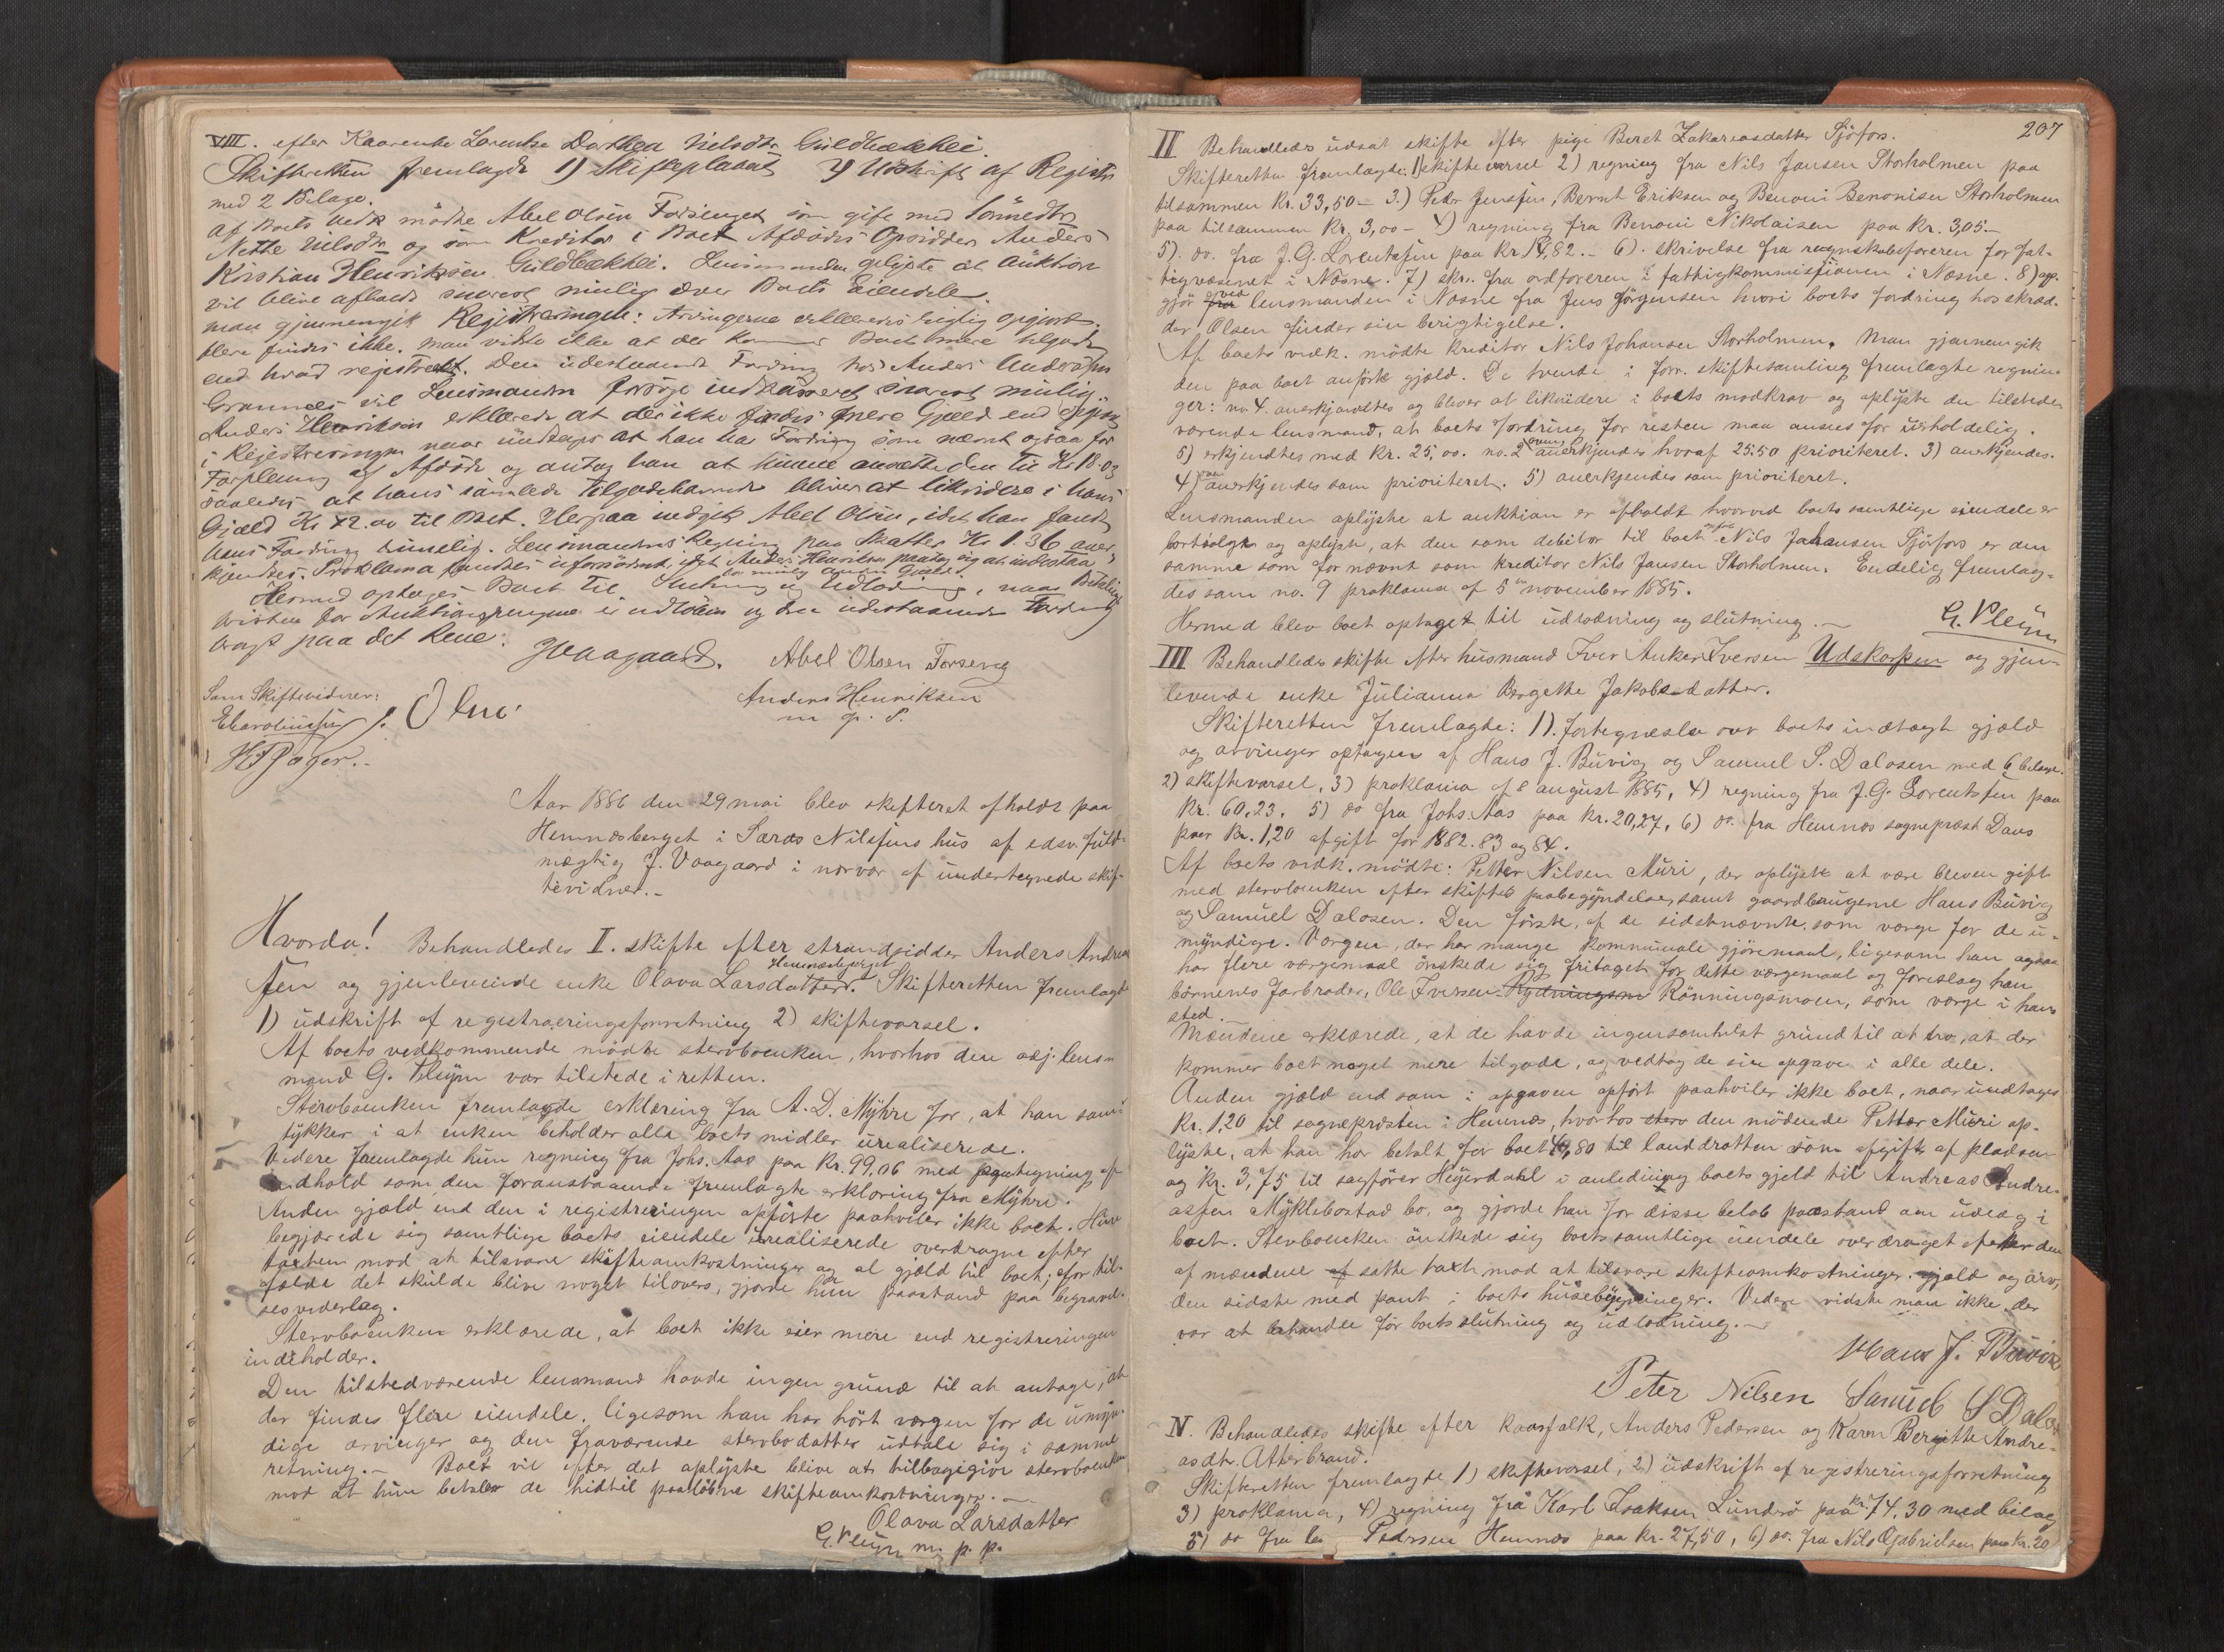 VIII. efter Kaarenke Lorentse Dorthea Nilsdtr Guldbækhei.
Skifteretten fremlagde 1) Skifteplacat 2) Udskrift af Registr
med 2 Bilage.
Af Boets Vedk mødte Abel Olsen Forseneget som gift med Sønnedtr
Nette Nilsdtr og som Kreditor i Boet Afdødes Opsidder Anders
Kristian Henriksen Guldbækhei. Lensmanden oplyste at Auktion
vil blive afholdt snarest mulig over Boets Eiendele.
Man gjennemgik Registreringen: Arvingerne erklæredes rigtig opgivet.
flere findes ikke. Man vidste ikke at der kommer Boet mere tilgode
end hvad registreret. Den udestaaende Fordring hos Anders Andersen
Grannes vil Lensmanden sørge indkasseret snarest mulig.
Anders Henriksen erklærede at der ikke findes mere Gjæld end
i Registreringen naar undtages at han har Fordring som nævnt ogsaa for
Forpleining af Afdøde og antog han at kunne ansætte den til Kr 18.03
saaledes at hans samlede Tilgodehavende bliver at likvidere i hans
Gjæld Kr 12.00 til Boet. Herpaa indgik Abel Olsen, idet han fandt
hans Fordring rimelig. Lensmandens Regning paa Skatter Kr 1.36 aner-
kjendtes. Proklama fandtes ufornødent, idet Anders Henriksen paatog sig at indestaa
for mulig anden Gjæld.
Hermed optoges Boet til Slutning og Udlodning, naar Betalings
fristen for Auktionspengene er udløben og den udestaaende Fordring
bragt paa det Rene.
JVaagaard. Abel Olsen Forseneg
Anders Henriksen
m. p. P.
Som Skiftevidner:
H F Jager.
Aar 1886 den 29 mai blev skifteret afholdt paa
Hemnæsberget i Saras Nilsens hus af edsv. fuld-
mægtig J. Vaagaard i nærvær af undertegnede skif-
tevidner.-
Hvorda! Behandledes I. skifte efter strandsidder Anders Andrea
Hemnæsberget
sen og gjenlevende enke Olava Larsdatter. Skifteretten fremlagde
1) udskrift af registraeringsforretning 2) skiftevarsel.
Af boets vedkommende mødte stervboenken, hvorhos den asj. lens-
mand G. Pleijm var tilstede i retten.
Stervboenken fremlagde erklæring fra A. D. Myhre for, at han sam-
tykker i at enken beholder alle boets midler urealiserede.
Videre fremlagde hun regning fra Johs. Aas paa kr. 99,06 med paategning af
indhold som den foranstaaende fremlagte erklæring fra Myhre.
Anden gjæld end den i registreringen opførte paahviler ikke boet. Hun
begjærede sig samtlige boets eiendele urealiserede overdragne efter
taxten mod at tilsvare skifteomkostninger og al gjæld til boet; for til-
fælde det skulde blive noget tilovers, gjorde hun paastand paa begravel-
sesvederlag.
Stervboenken erklærede, at boet ikke eier mere end registreringen
indeholder.
Den tilstedværende lensmand havde ingen grund til at antage, at
der findes flere eiendele, ligesom han har hørt værgen for de umyn-
dige arvinger og den fraværende stervbodatter udtale sig i samme
retning.- Boet vil efter det oplyste blive at tilbagegive stervboenken
mod at hun betaler de hidtil paaløbne skifteomkostninger.-
Olava Larsdatter
G. Pleijm m. p. p.
207
II Behandledes udsat skifte efter pige Beret Zakariasdatter Sjøfors.
Skifteretten fremlagde: 1) skiftevarsel 2) regning fra Nils Jansen Storholmen paa
tilsammen kr. 33,50 - 3.) Peder Jensen, Bernt Eriksen og Benoni Benonisen Storholmen
paa tilsammen kr. 3,00 - 4) regning fra Benoni Nikolaisen paa kr. 3,05.-
5). do. fra J. G. Lorentsen paa kr. 14,82.- 6). skrivelse fra regnskabsføreren for fat-
tigvæsenet i Næsne. 7) skr. fra ordføreren i fattigkommissionen i Næsne. 8) op-
gjør fra ved lensmanden i Næsne fra Jens Jørgensen hvori boets fordring hos skræd-
der Olsen finder sin berigtigelse.
Af boets vedk. mødte kreditor Nils Johansen Storholmen. Man gjennemgik
den paa boet anførte gjæld. De tvende i forr. skiftesamling fremlagte regnin-
ger: no 4. anerkjendtes og bliver at likvidere i boets modkrav og oplyste den tilstede-
værende lensmand, at boets fordring for resten maa ansees for uerholdelig.
5) erkjendtes med kr. 25,00. no. 2 anerkjendes hvoraf 25.50 prioriteret. 3) anerkjendes.
4) anerkjendes som prioriteret. 5) anerkjendes som prioriteret.
Lensmanden oplyste at auktion er afholdt hvorved boets samtlige eiendele er
bortsolgte og oplyste, at den som debitor til boet Nils Johansen Sjøfors er den
samme som fornævnt som kreditor Nils Jansen Storholmen. Endelig fremlag-
des som no. 9 proklama af 5te november 1885.
Hermed blev boet optaget til udlodning og slutning.-
G. Pleijm
III Behandledes skifte efter husmand Iver Anker Iversen Udskorpen og gjen-
levende enke Julianna Bergette Jakobsdatter.
Skifteretten fremlagde: 1). fortegnelse over boets indtægt gjæld
og arvinger optagen af Hans J. Buvig og Samuel S. Dalosen med 6 bilage.
2) skiftevarsel, 3) proklama af 8 august 1885, 4) regning fra J. G. Lorentsen paa
kr. 60,23, 5) do fra Johs. Aas paa kr. 20,27, 6) do. fra Hemnes sogneprest Daus
paa kr. 1,20 afgift for 1882. 83 og 84.
Af boets vedk. mødte: Petter Nilsen Muri, der oplyste at være bleven gift
med stervboenken efter skiftets paabegyndelse, samt gaardbrugerne Hans Buvig
og Samuel Dalosen. Den første, af de sidstnævnte, som værge for de u-
myndige. Værgen, der har mange kommunale gjøremaal, ligesom han ogsaa
har flere værgemaal ønskede sig fritaget for dette værgemaal og foreslog han
børnenes farbroder, Ole Iversen Rydningsm Rønningsmoen, som værge i hans
sted.
Mændene erklærede, at de havde ingensomhelst grund til at tro, at der
kommer boet noget mere tilgode, og vedtog de sin opgave i alle dele.
Anden gjæld end som i opgaven opført paahviler ikke boet, naar undtages
kr. 1,20 til sognepresten i Hemnes, hvorhos sterv den mødende Petter Muri op-
lyste, at han har betalt for boet 4,80 til landdrotten som afgift af pladsen
og kr. 3,75 til sagfører Heyerdahl i anledning boets gjeld til Andreas Andre-
assen Myklebostad bo, og gjorde han for disse beløb paastand om udlæg i
boet. Stervboenken ønskede sig boets samtlige eiendele overdraget efter den
af mændene af satte taxt mod at tilsvare skifteomkostninger, gjæld og arv,
den sidste med pant i boets husebygninger. Videre vidste man ikke der
var at behandle før boets slutning og udlodning.-
Hans J. Buvig
Peter Nilsen Samuel S Dalos
IV. Behandledes skifte efter kaarfolk, Anders Pedersen og Karen Bergitte Andre-
asdtr. Atterbrand.
Skifteretten fremlagde 1) skiftevarsel, 2) udskrift af registreringsforretning
3) proklama, 4) regning fra Karl Isaksen Lunderø paa kr. 74,30 med bilag
5) do fra Pedersen Hemnæs paa kr. 27,50, 6) do. fra Nils O Gabrielsen paa kr. 20